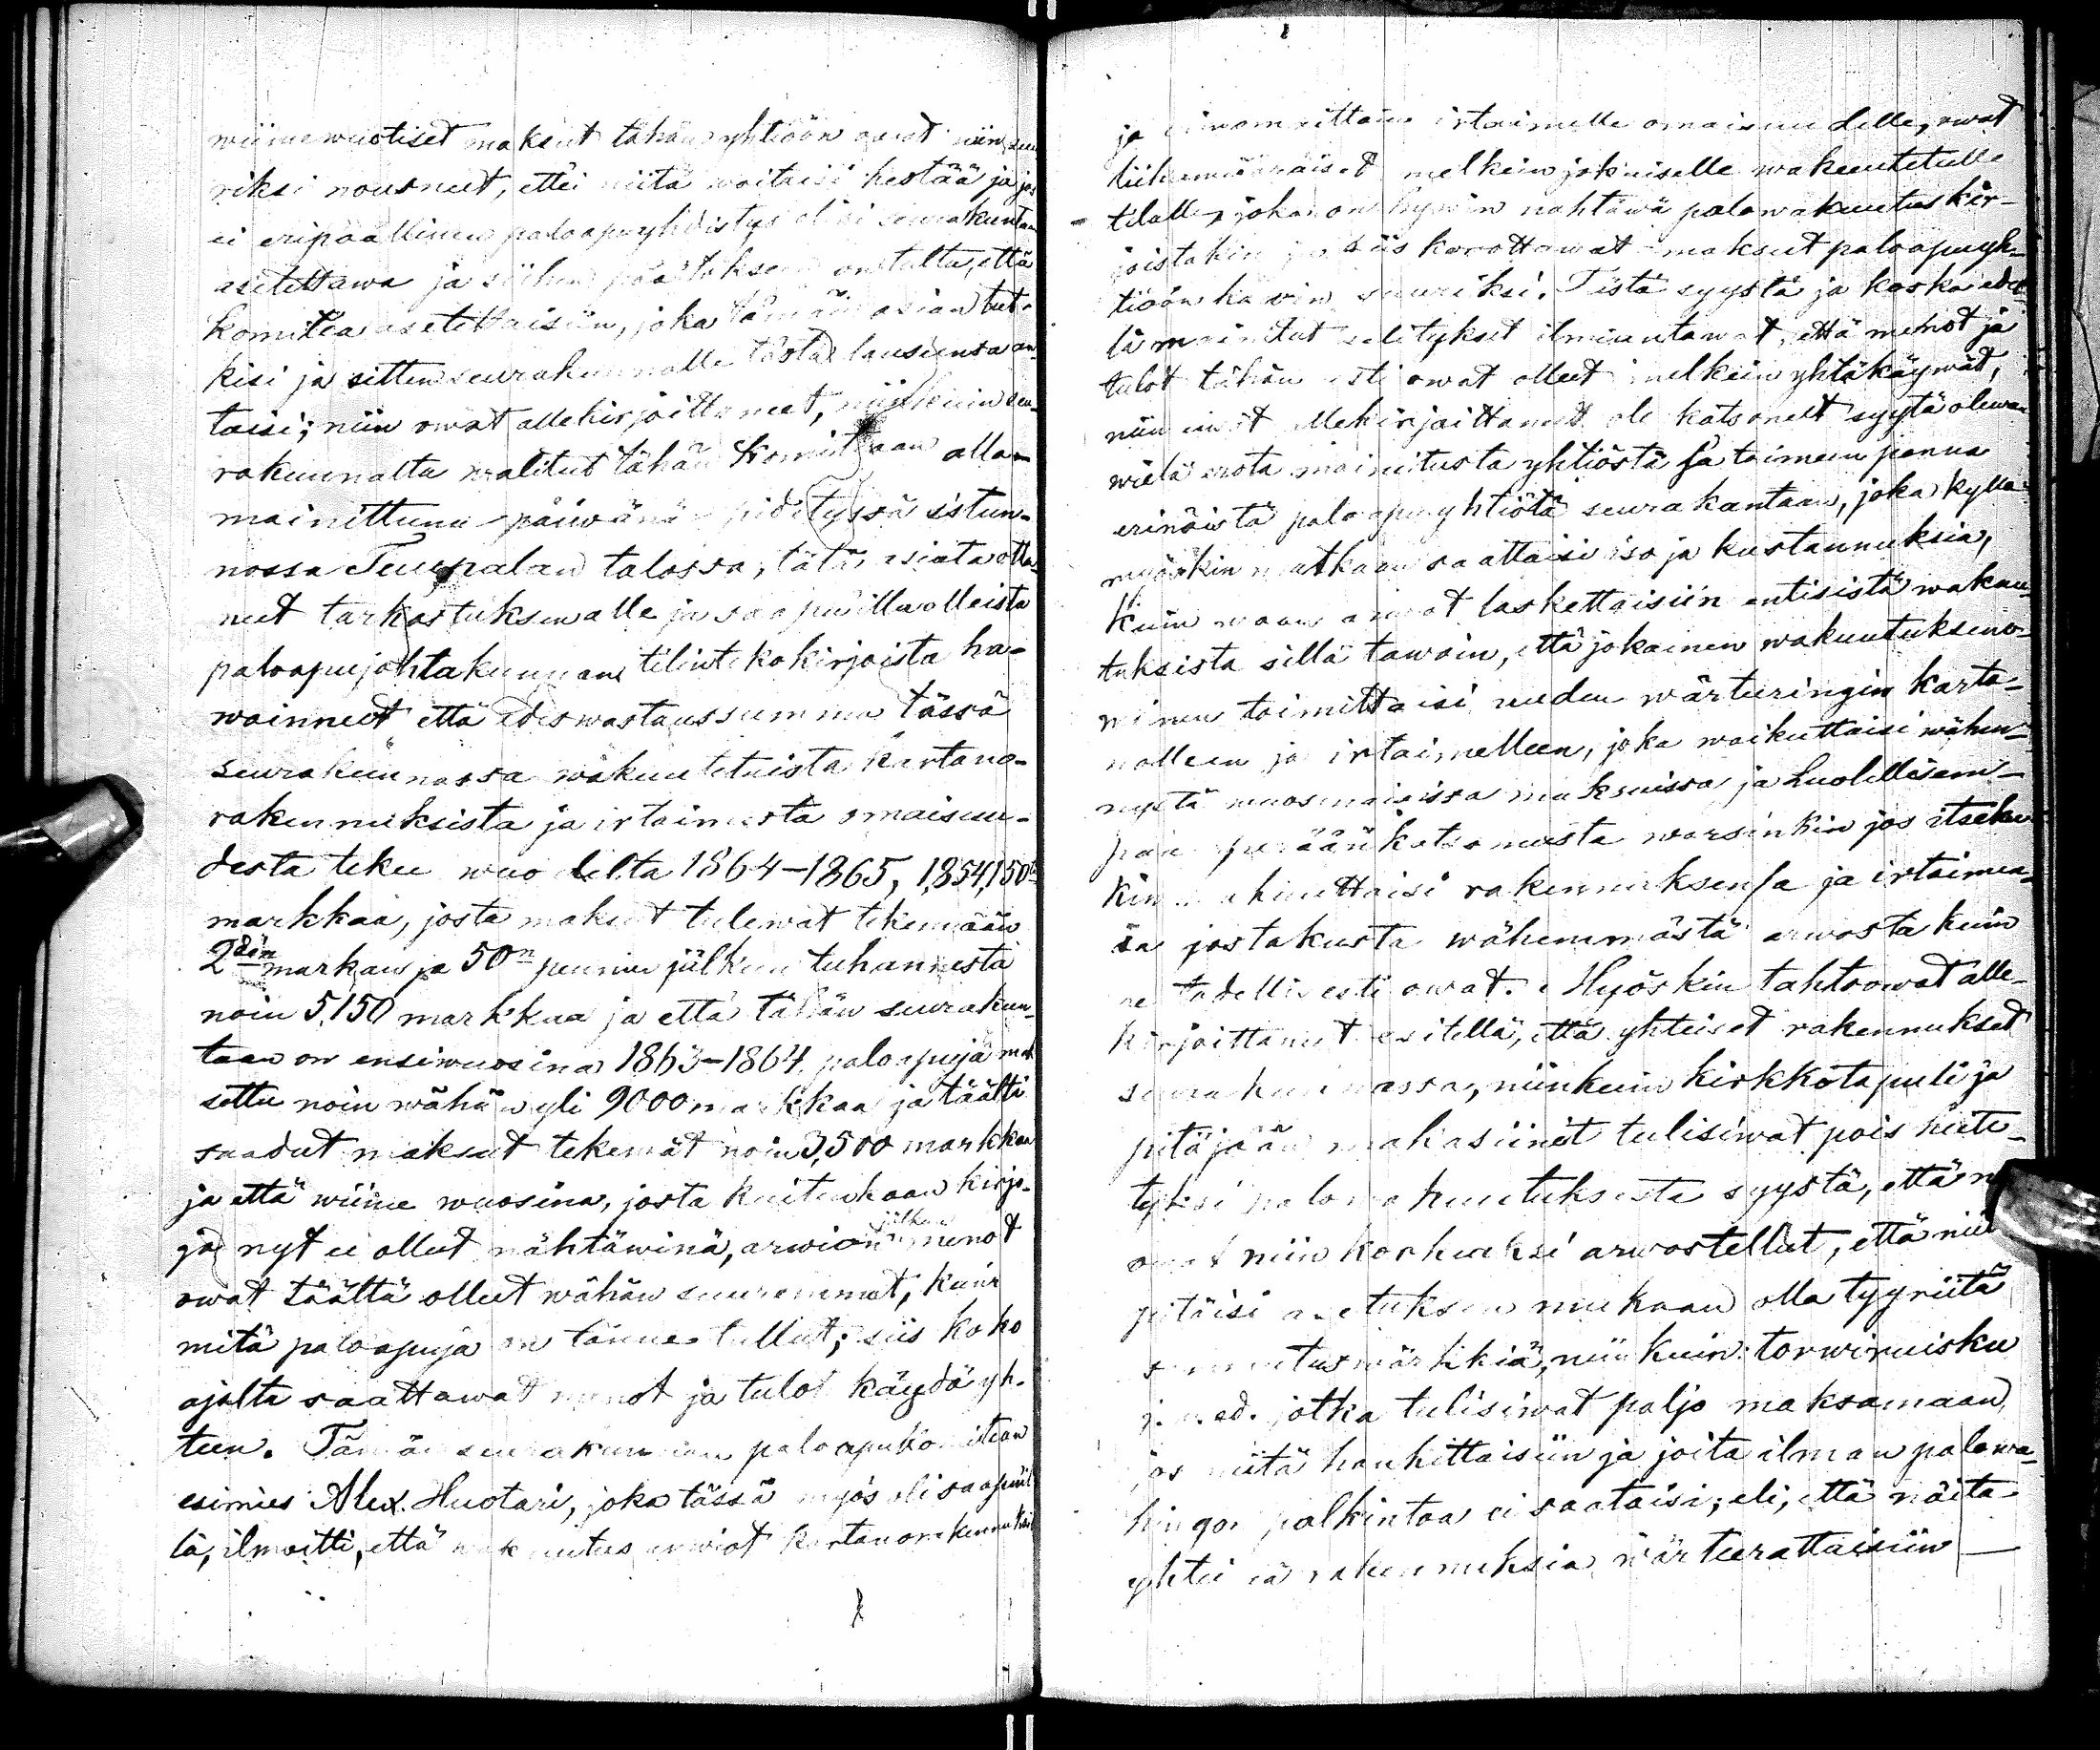 wiime wuotiset maksut tähän yhtiöön owat niin suu
riksi nousneet, ettei niitä woitaisi kestää ja jos
ei eripäällinen paloapuyhdistys olisi seurakuntaan
asetettawa ja siihen päätökseen on tultu, että
komitea asetettaisiin, joka tämän asian tut-
kisi ja sitten seurakunnalle tästä lausuntonsa an-
taisi; niin owat allekirjoittaneet, niinkuin seu-
rakunnalta walitut tähän Komiteaan alla-
mainittuna päiwänä pidetyssä istun-
nossa Teuppalan talossa, tätä asiata otta-
neet tarkastuksen alle ja saapuilla olleista
paloapujohtakunnan tilintekokirjoista ha-
wainneet että edeswastaussumma tässä
seurakunnassa wakuutetuista kartano-
rakennuksista ja irtaimesta omaisuu-
desta tekee wuodelta 1864-1865, 1,854,150
markkaa, josta maksut tulewat tekemään
2den markan ja 50n pennin jälkeen tuhannesta
noin 5,150 markkaa ja että tähän seurakun-
taan on ensiwuosina 1863-1864 paloapuja mak
settu noin wähän yli 9000 markkaa ja täältä
saadut maksut tekewät noin 3,500 markkaa
ja että wiime wuosina, josta kuitenkaan kirjo-
ja nyt ei ollut nähtäwinä, arwion jälkeen menot
owat täältä olleet wähän suuremmat, kuin
mitä paloapuja on tänne tullut; siis koko
ajalta saattawat menot ja tulot käydä yh-
teen. Tämän seurakunnan paloapukomitean
esimies Alex. Huotari, joka tässä myös oli saapuil
la, ilmoitti, että wakuutus arwiot kartanorakennuksil
ja irtaimelle omaisuudelle, owat
liikamääräiset melkein jokaiselle wakuutetulle
tilalle, joka on hywin nähtäwä palowakuutuskir-
joistakin ja siis korottawat maksut paloapuyh-
tiöön kowin suuriksi. Tästä syystä ja koska edel
lä mainitut selitykset ilmiantawat, että menot ja
tulot tähän asti owat olleet melkein yhtäkäywät,
niin eiwät allekirjoittaneet ole katsoneet syytä olewan
wielä erota mainitusta yhtiöstä ja toimeen panna
erinäistä paloapuyhtiötä seurakuntaan, joka kyllä
myöskin matkaan saattaisi isoja kustannuksia,
kuin waan arwot laskettaisiin entisistä wakuu-
tuksista sillä tawoin, että jokainen wakuutuksen o-
winen toimittaisi uuden wärteringin karta-
nolleen ja irtaimelleen, joka waikuttaisi wähen-
nystä wuosmaisissa maksuissa ja huolellisem-
paa perään katsomusta warsinkin jos itseku
kin wakuuttaisi rakennuksensa ja irtaimen-
sa jostakusta wähemmästä arwosta kuin
ne todellisesti owat. Myöskin tahtoowat alle-
kirjoittaneet esitellä, että yhteiset rakennukset
seurakunnassa, niinkuin kirkko tapuli ja
pitäjään makasiinit tulisiwat pois heite-
tyksi palowakuutuksesta syystä, että ne
owat niin korkeaksi arwostellut, että niillä
pitäisi asetuksen mukaan olla tyyriitä
sammutuswärkkiä, niinkuin: torwiruisku
j. n. ed. jotka tulisiwat paljo maksamaan,
jos niitä hankittaisiin ja joita ilman palowa-
hingon palkintoa ei saataisi; eli, että näitä
yhteisiä rakennuksia wärteerattaisiin —